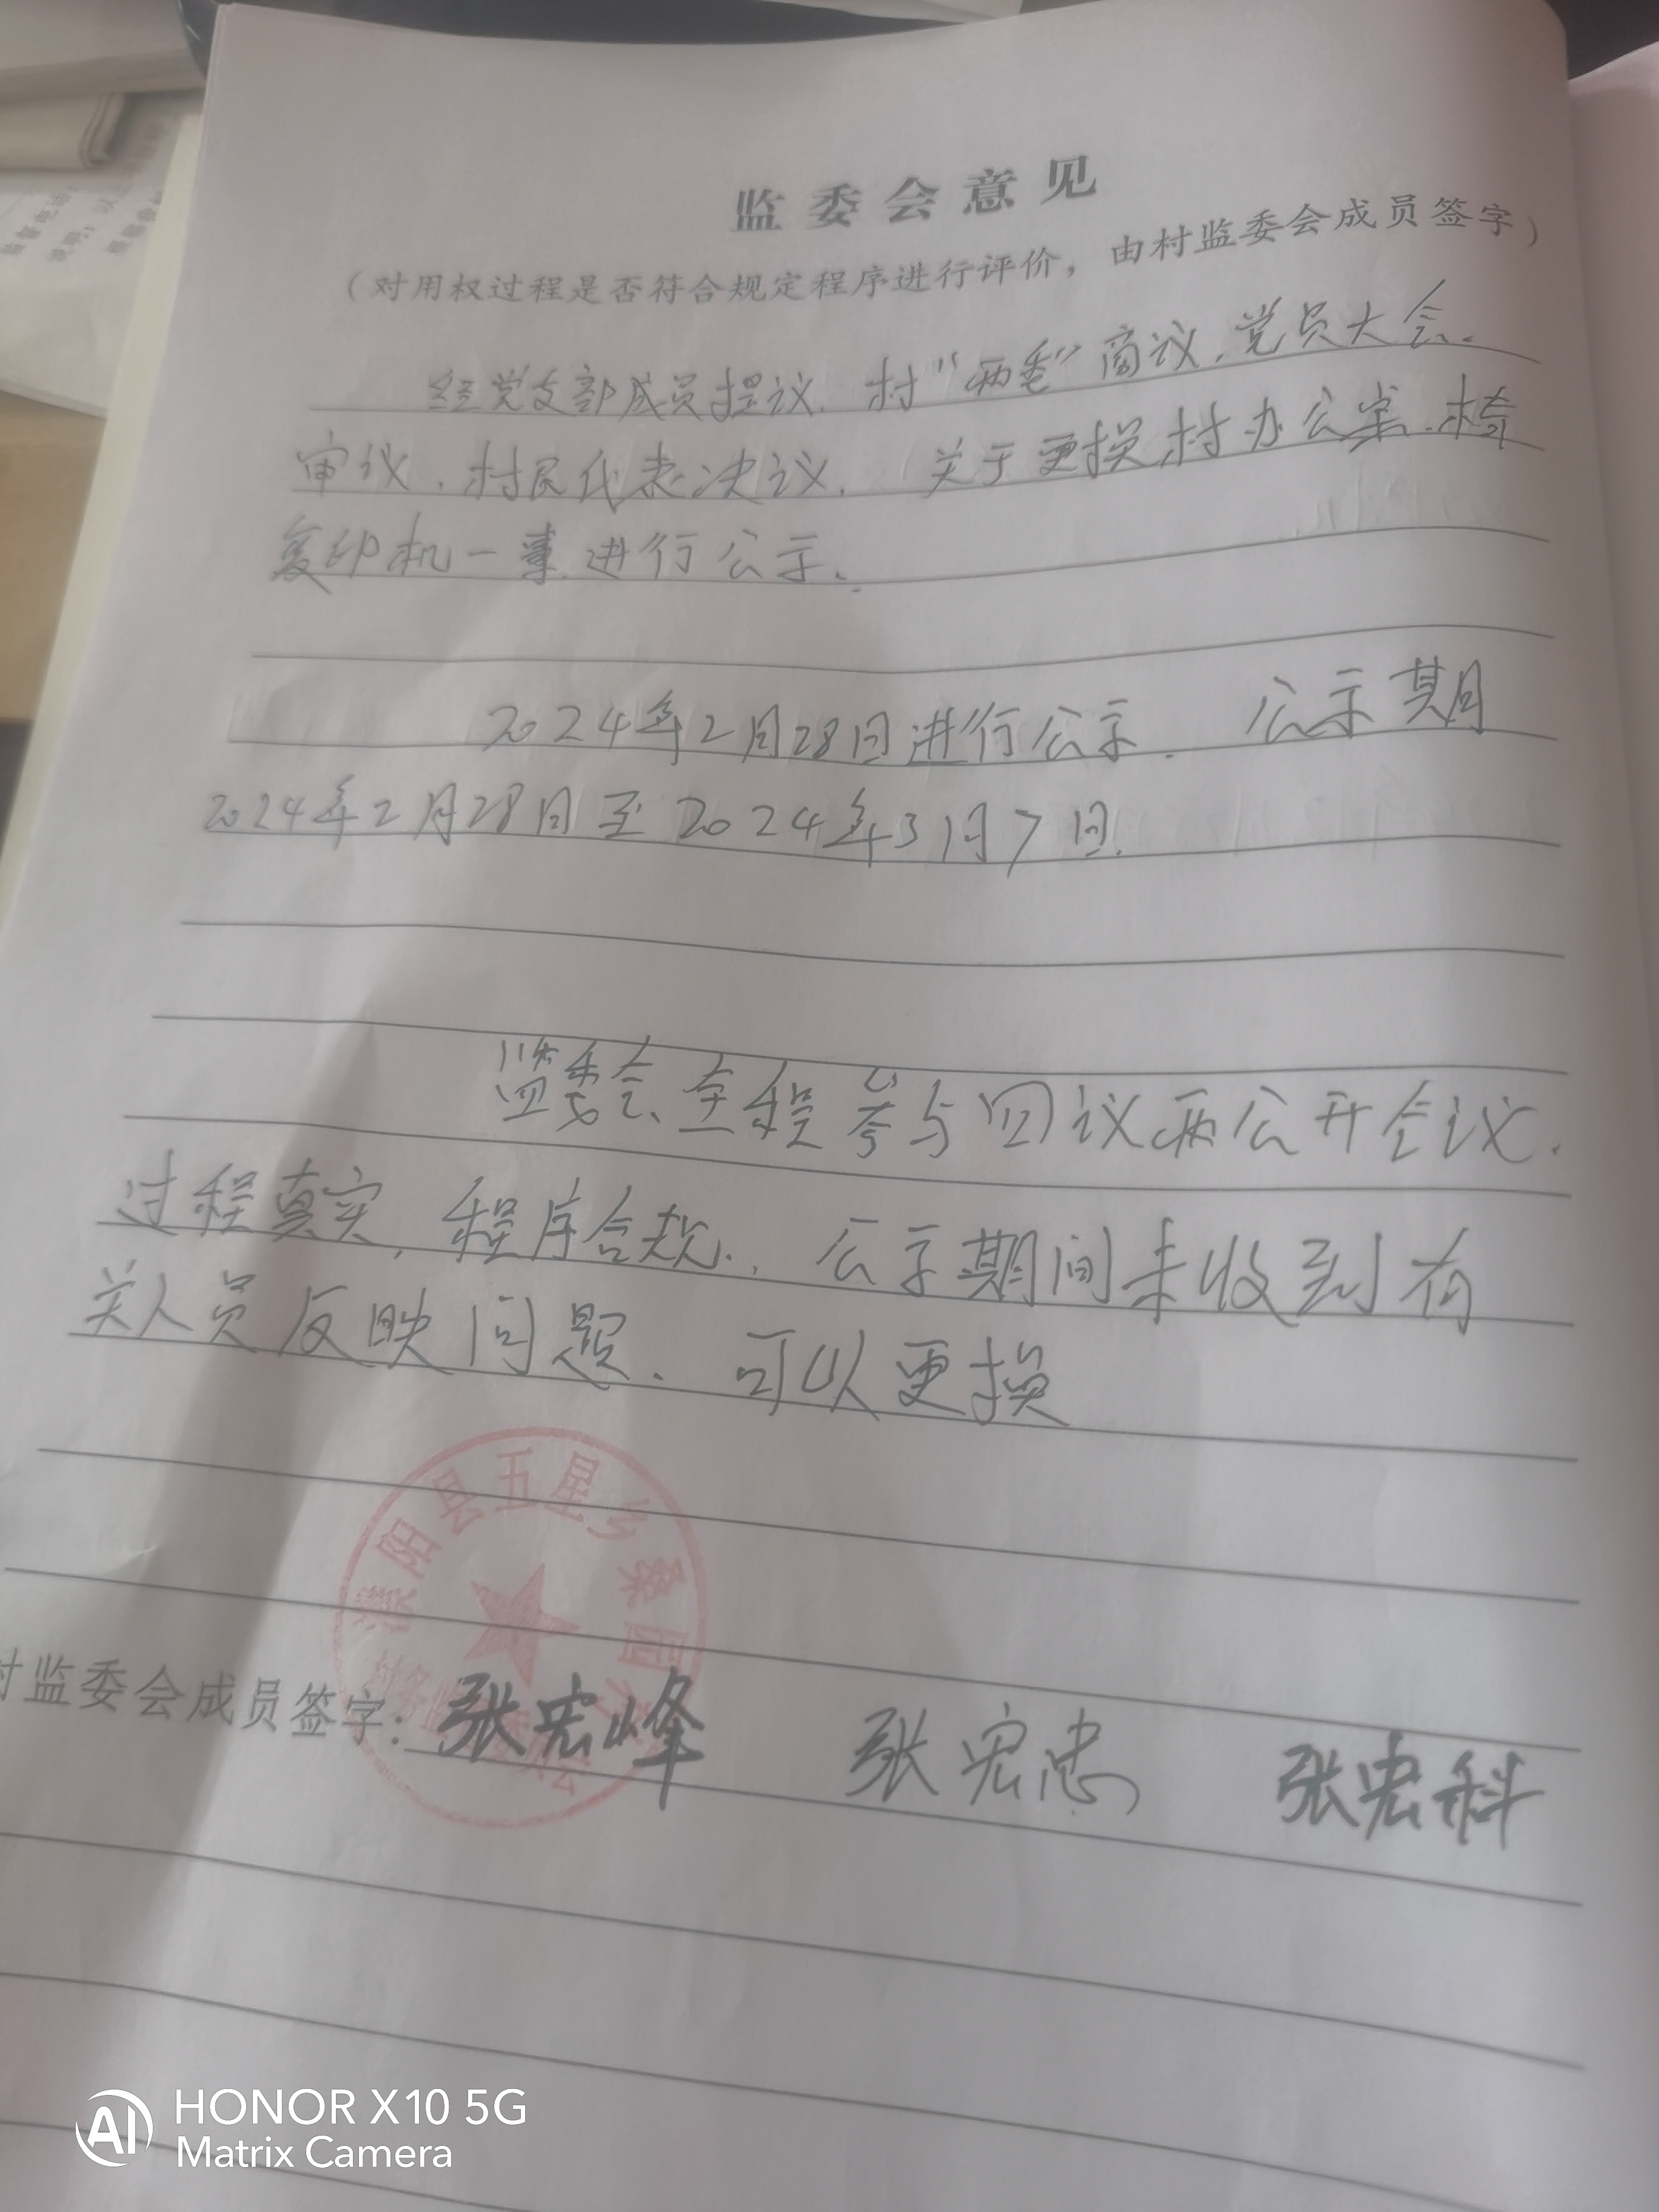 监委会意见
（对用权过程是否符合规定程序进行评价，由村监委会成员签字）
经党支部成员提议、村“两委”商议、党员大会
审议、村民代表决议、关于更换村办公案、椅
复印机一事进行公示、
2024年2月28日进行公示、公示期
2024年2月28日至2024年3月7日、
监委会全程参与四议两公开会议、
过程真实，程序合规、公示期间未收到有
关人员反映问题、可以更换
濮阳县五星乡桑园
村监委会成员签字：张宏峰 张宏忠 张宏科
HONOR X10 5G
Matrix Camera